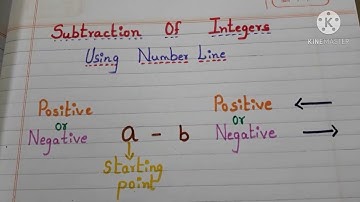 Subtraction Of Integers
Using Number Line
KINEMASTER
Positive
or
Negative
a - b
Positive ←
or
Negative →
starting
point